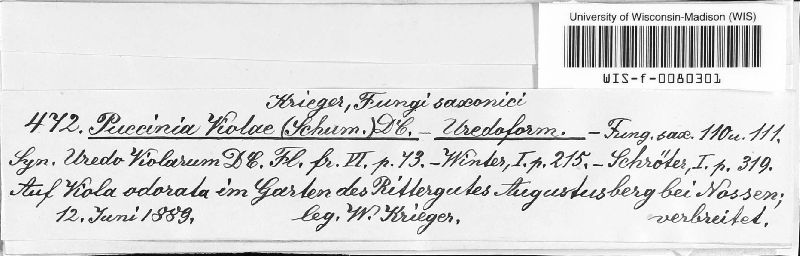 University of Wisconsin-Madison (WIS)
WIS-f-0080301
Krieger, Fungi saxonici
472. Puccinia Violae (Schum.) DC. – Uredoform. – Fung. sax. 110 u. 111.
Syn. Uredo Violarum DC. Fl. fr. VI. p. 73. – Winter, I. p. 215. – Schröter, I. p. 319.
Auf Viola odorata im Garten des Rittergutes Augustusberg bei Nossen;
12. Juni 1889. leg. W. Krieger. verbreitet.